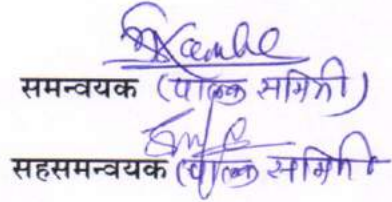 समन्वयक (पालक समिती)
सहसमन्वयक (पालक समिती